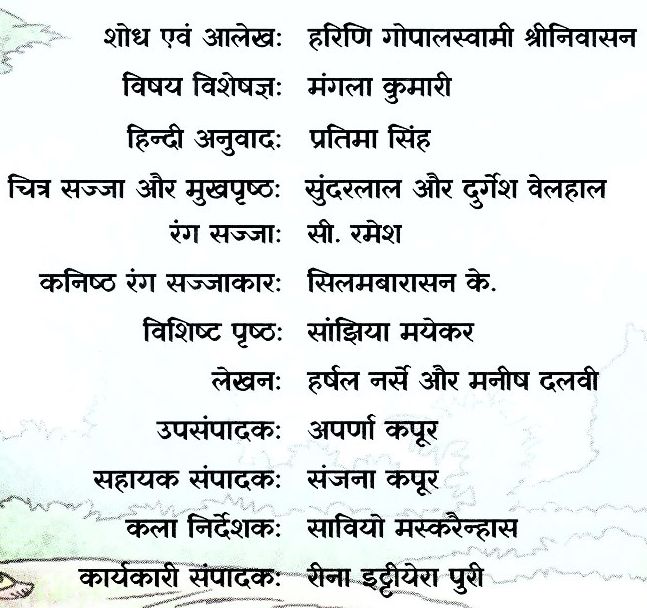 शोध एवं आलेख: हरिणि गोपालस्वामी श्रीनिवासन
विषय विशेषज्ञ: मंगला कुमारी
हिन्दी अनुवाद: प्रतिमा सिंह
चित्र सज्जा और मुखपृष्ठ: सुंदरलाल और दुर्गेश वेलहाल
रंग सज्जा: सी. रमेश
कनिष्ठ रंग सज्जाकार: सिलमबारासन के.
विशिष्ट पृष्ठ: सांझिया मयेकर
लेखन: हर्षल नर्से और मनीष दलवी
उपसंपादक: अपर्णा कपूर
सहायक संपादक: संजना कपूर
कला निर्देशक: सावियो मस्करैन्हास
कार्यकारी संपादक: रीना इट्टीयेरा पुरी